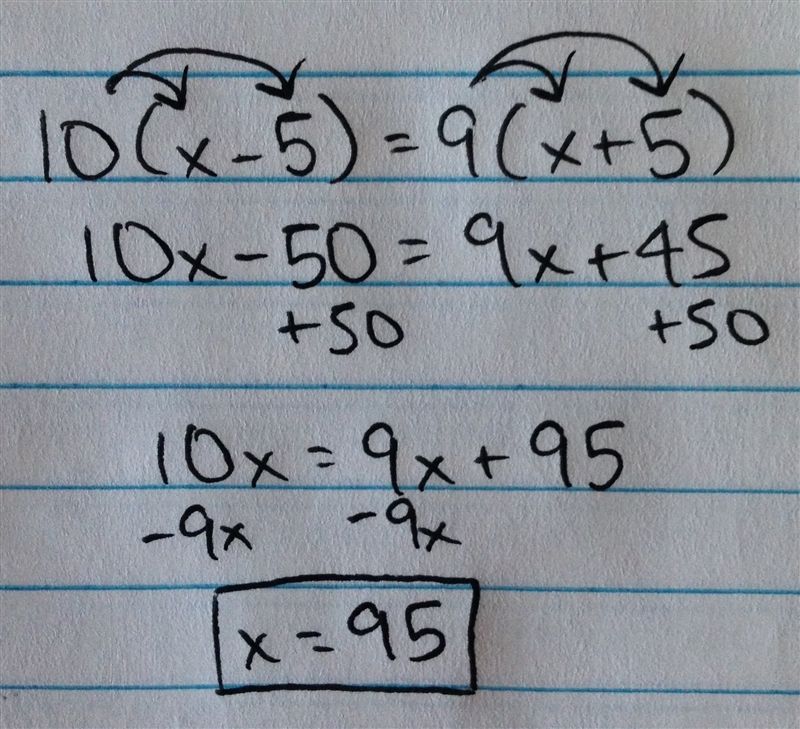 10(x-5)=9(x+5)
10x-50=9x+45
+50 +50
10x=9x+95
-9x -9x
x=95